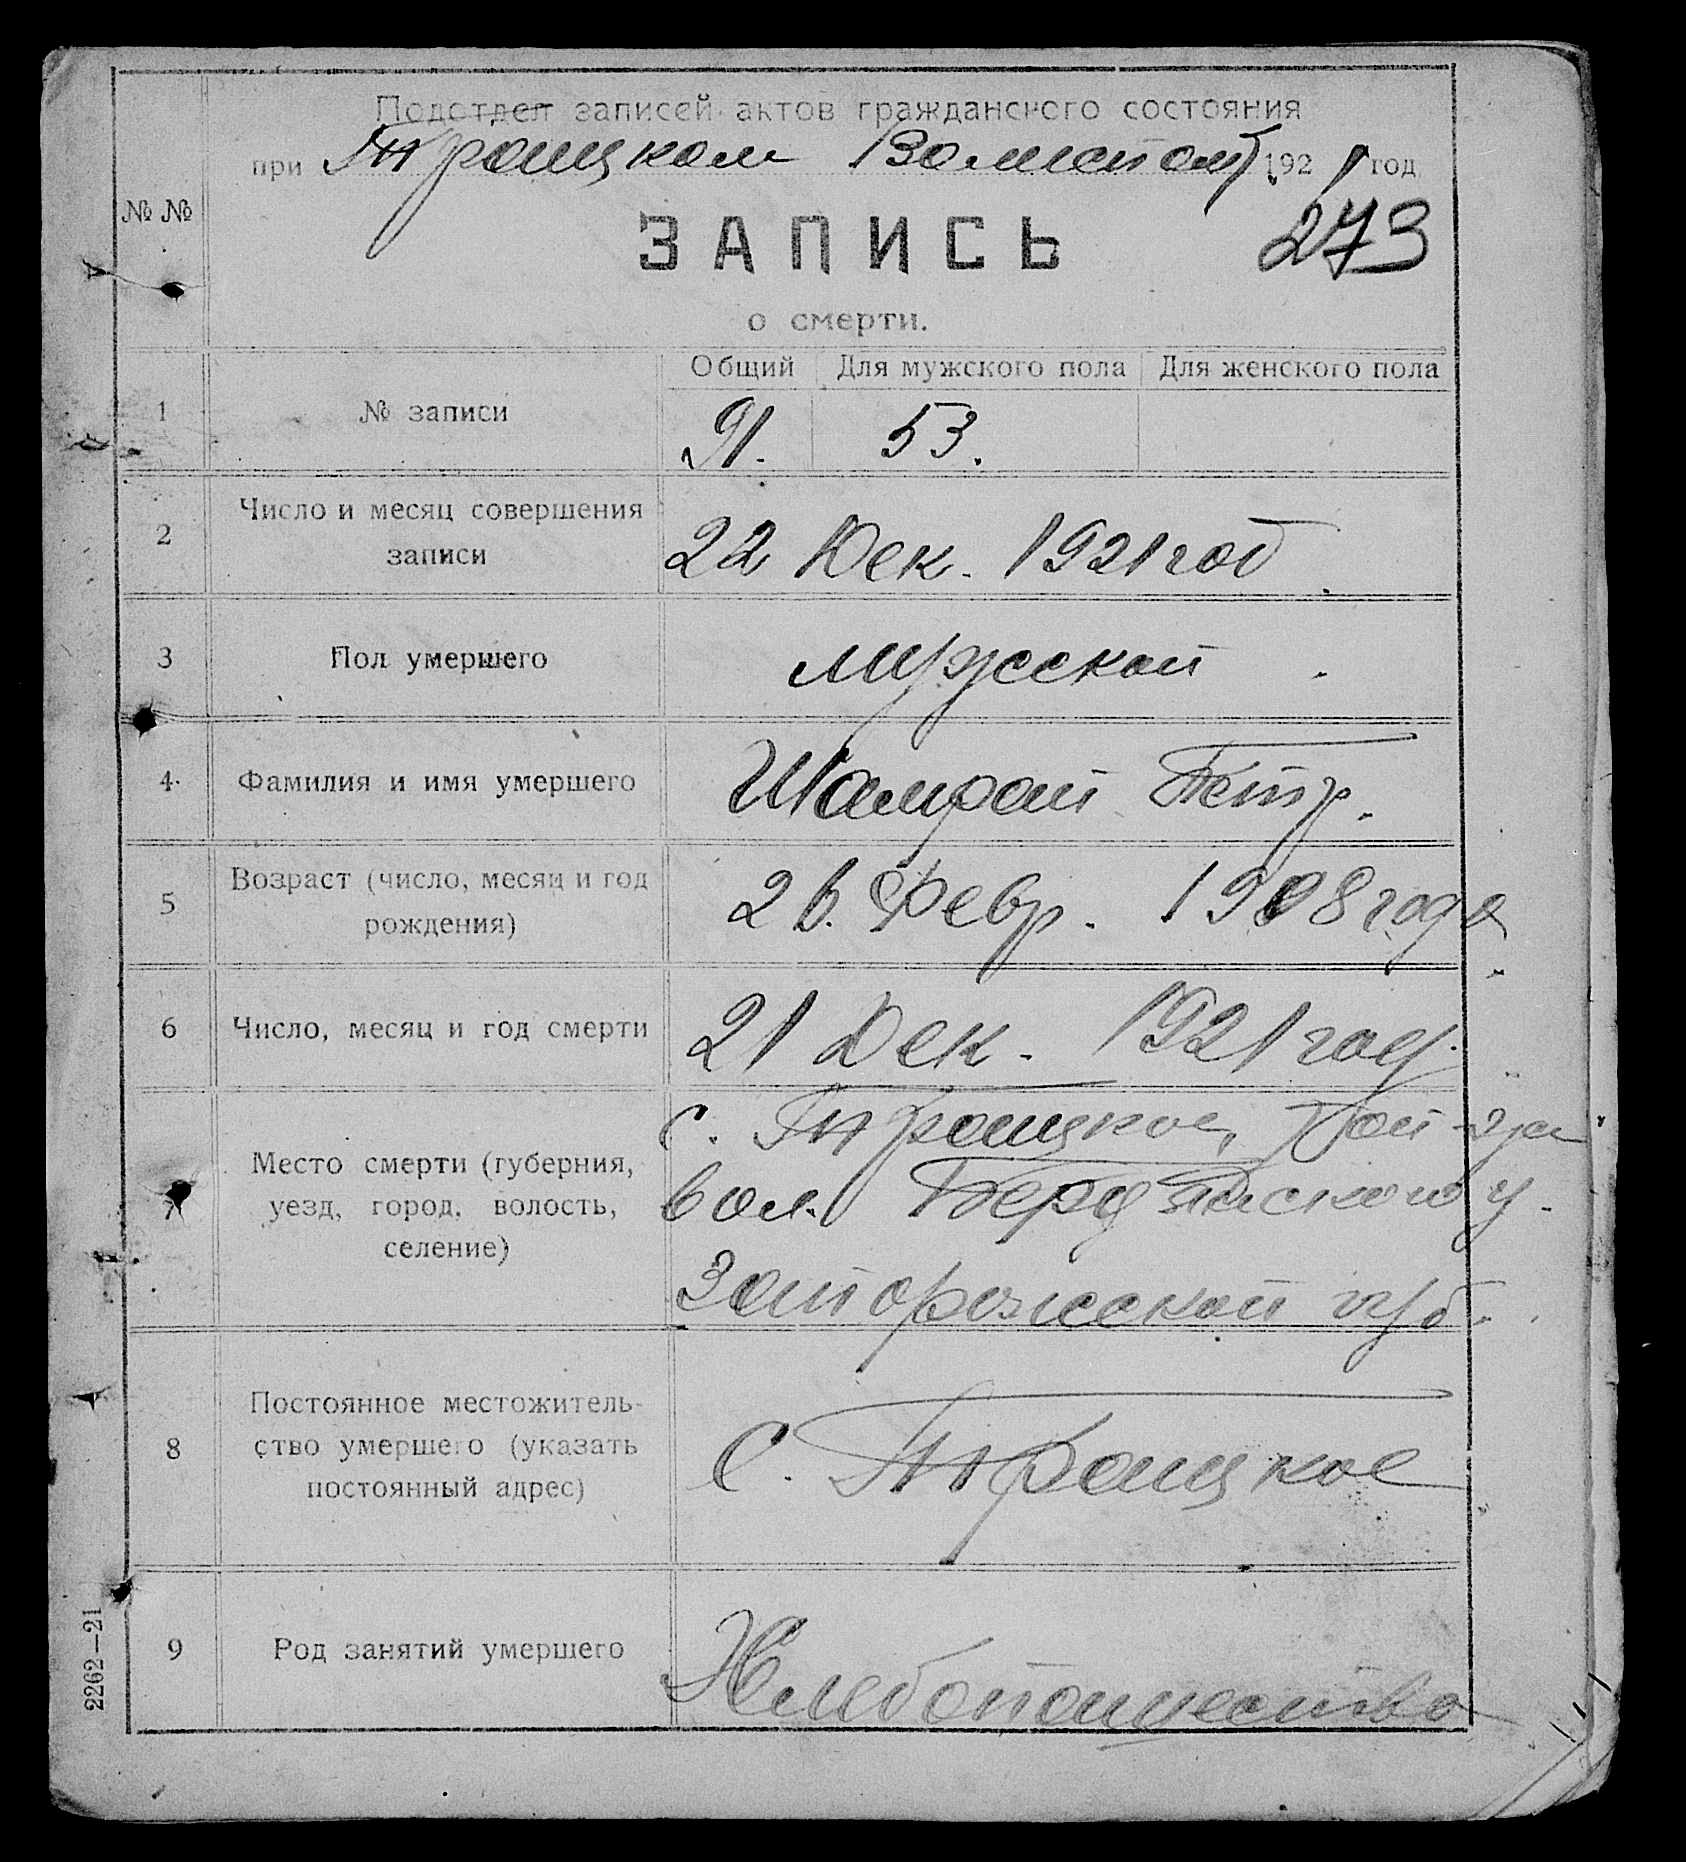 Подотдел записей актов гражданского состояния
при Троицком 1921 год
№ №
273
ЗАПИСЬ
о смерти.
Общий Для мужского пола Для женского пола
1 № записи 91. 53.
2 Число и месяц совершения
записи 22 Дек. 1921 год
3 Пол умершего мужской
4 Фамилия и имя умершего Шамрай Петр.
5 Возраст (число, месяц и год
рождения) 26. Февр. 1908 года
6 Число, месяц и год смерти 21 Дек. 1921 год.
7 Место смерти (губерния,
уезд, город, волость,
селение)
с. Троицкое,
вол. Бердянского у.
Запорожской губ.
8 Постоянное местожитель-
ство умершего (указать
постоянный адрес) С. Троицкое
9 Род занятий умершего Хлебопашество
2262—21